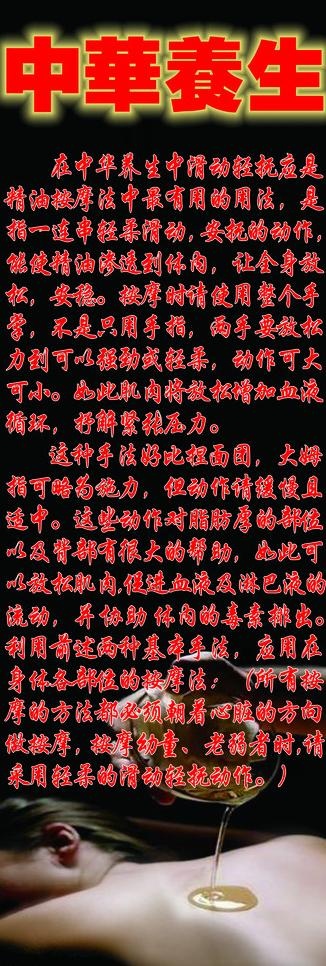 中華養生
在中华养生中滑动轻抚应是
精油按摩法中最有用的用法，是
指一连串轻柔滑动,安抚的动作，
能使精油渗透到体内，让全身放
松，安稳。按摩时请使用整个手
掌，不是只用手指，两手要放松
力到可以强劲或轻柔，动作可大
可小。如此肌肉将放松增加血液
循环，抒解紧张压力。
这种手法好比捏面团，大姆
指可略为施力，但动作请缓慢且
适中。这些动作对脂肪厚的部位
以及背部有很大的帮助，如此可
以放松肌肉,促进血液及淋巴液的
流动，并协助 体内的毒素排出。
利用前述两种基本手法，应用在
身体各部位的按摩法：（所有按
摩的方法都必须朝着心脏的方向
做按摩，按摩幼童、老弱者时,请
采用轻柔的滑动轻抚动作。）